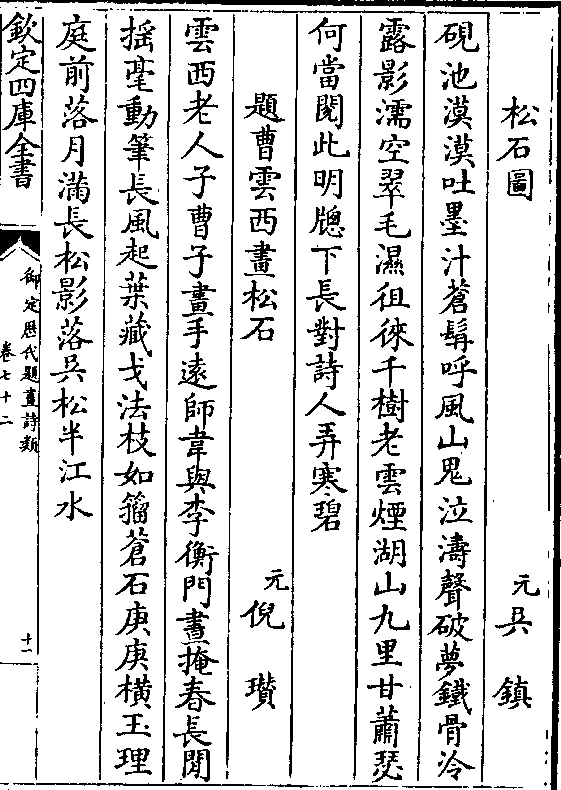 松石圖 元吳鎮
硯池漠漠吐墨汁蒼髯呼風山鬼泣濤聲破夢鐵骨冷
露影濡空翠毛濕徂徠千樹老雲煙湖山九里甘蕭瑟
何當閱此明牕下長對詩人弄寒碧
題曹雲西畫松石 元倪瓚
雲西老人子曹子畫手遠師韋與李衡門晝掩春長閒
揺毫動筆長風起葉藏戈法枝如籀蒼石庚庚橫玉理
庭前落月滿長松影落吳松半江水
欽定四庫全書
御定歴代題畫詩類
卷七十二
十一